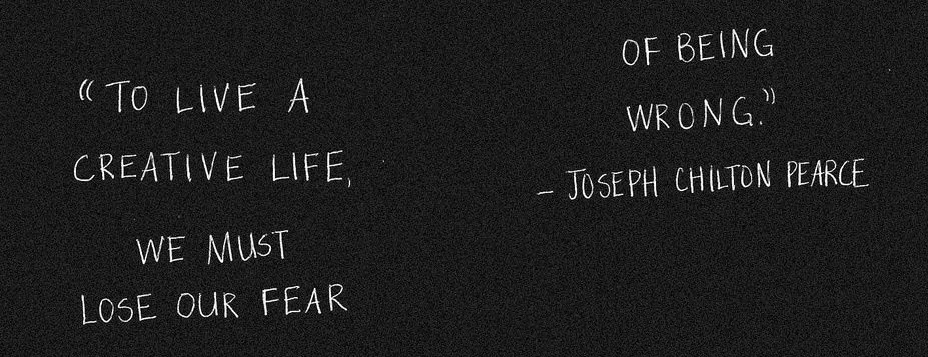 “TO LIVE A
CREATIVE LIFE,
WE MUST
LOSE OUR FEAR
OF BEING
WRONG.”
– JOSEPH CHILTON PEARCE